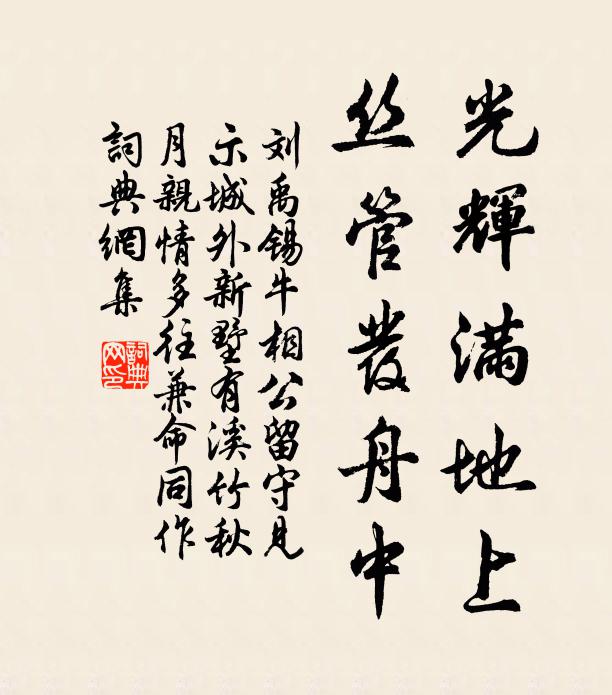 光輝滿地上
丝管發舟中
刘禹锡牛相公留守見
示城外新墅有溪竹秋
月親情多往兼命同作
詞典網集
詞典
网印